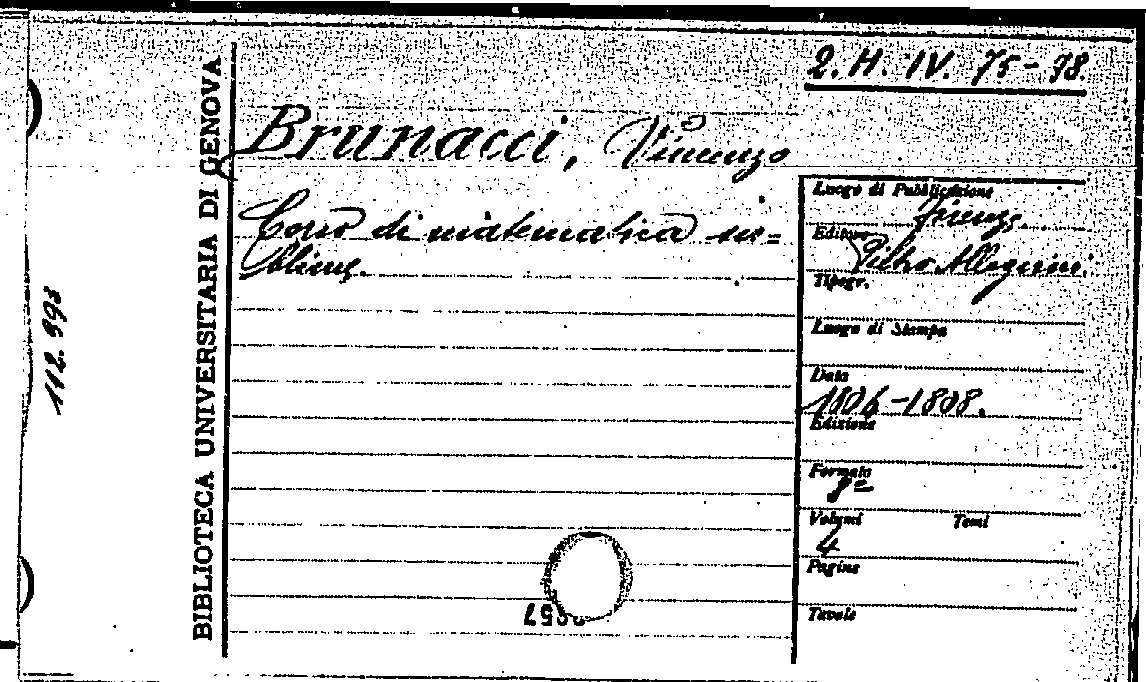 2. H. IV. 75-78.
BIBLIOTECA UNIVERSITARIA DI GENOVA
112.393
Brunacci, Vincenzo
Corso di matematica su=
blime.
Luogo di Pubblicazione
Firenze.
Editore
Pietro Allegrini.
Tipogr.
Luogo di Stampa
Data
1804-1808.
Edizione
Formato
8º
Volumi Tomi
4
Pagine
Tavole